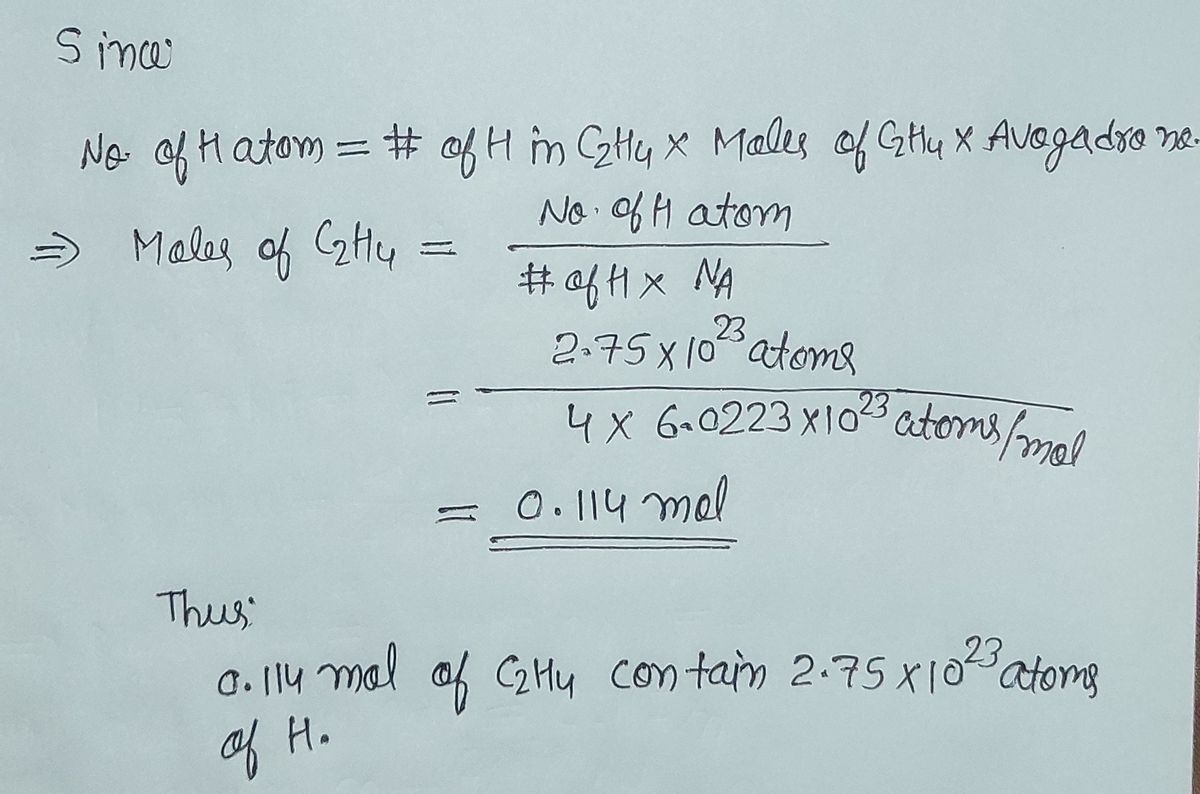 Since
No. of H atom = # of H in C₂H₄ × Moles of C₂H₄ × Avogadro no.
⇒ Moles of C₂H₄ = No. of H atom
# of H × NA
= 2.75 × 10²³ atoms
4 × 6.0223 × 10²³ atoms/mol
= 0.114 mol
Thus:
0.114 mol of C₂H₄ contain 2.75 × 10²³ atoms
of H.